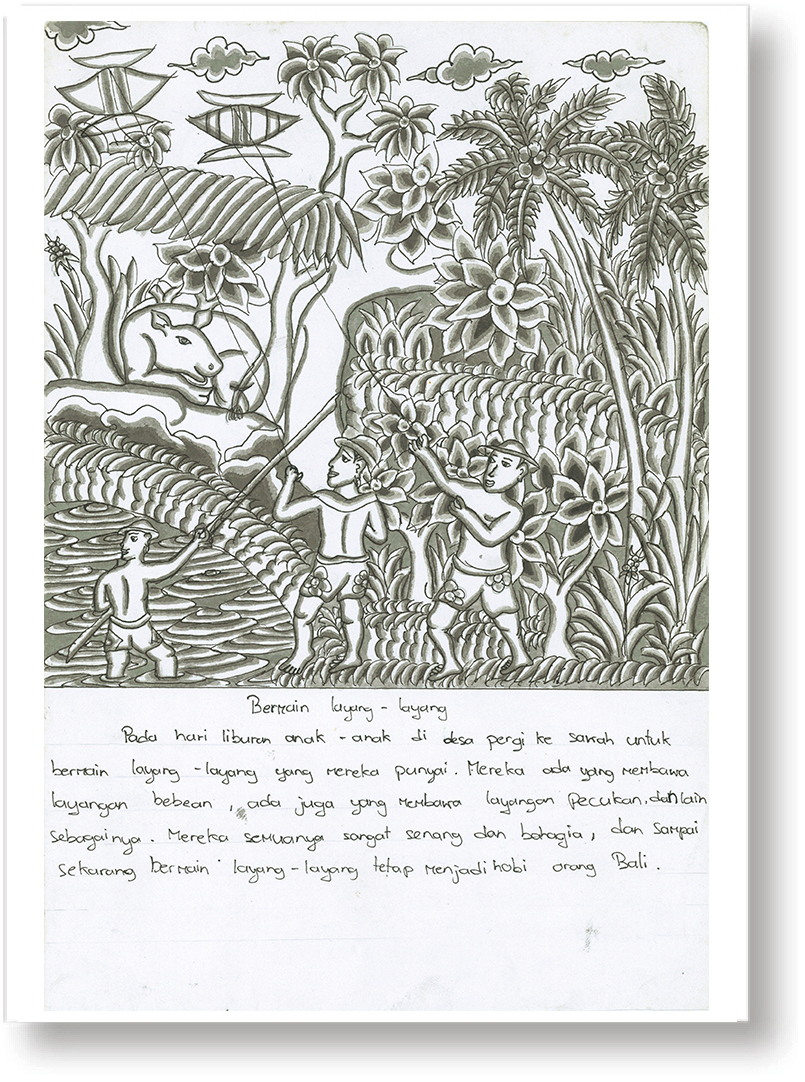 Bermain layang - layang
Pada hari liburan anak - anak di desa pergi ke sawah untuk
bermain layang - layang yang mereka punyai. Mereka ada yang membawa
layangan bebean, ada juga yang membawa layangan pecukan, dan lain
sebagainya. Mereka semuanya sangat senang dan bahagia, dan sampai
sekarang bermain layang - layang tetap menjadi hobi orang Bali.